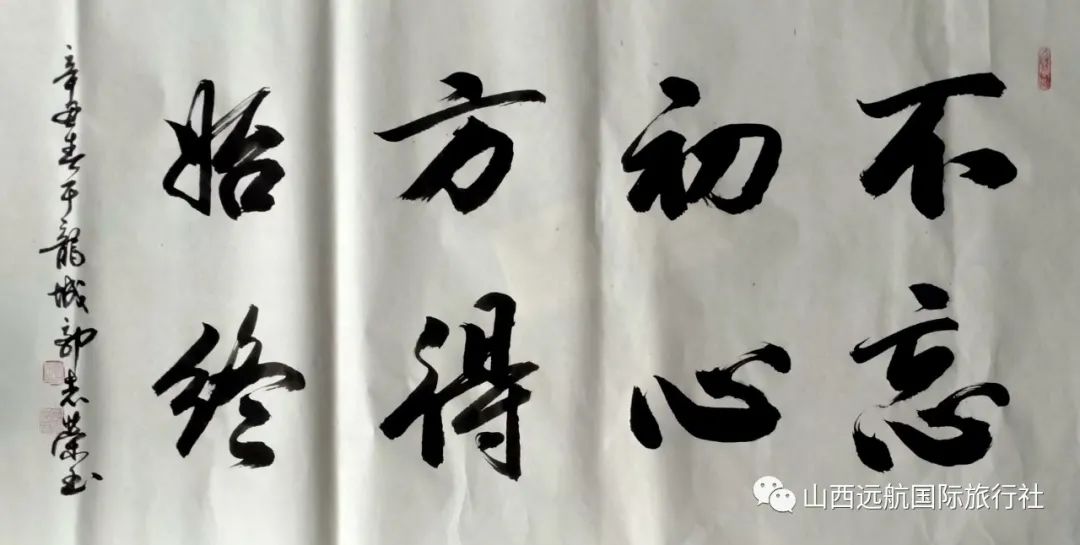 不忘
初心
方得
始终
辛丑春于龍城郭志荣书
山西远航国际旅行社